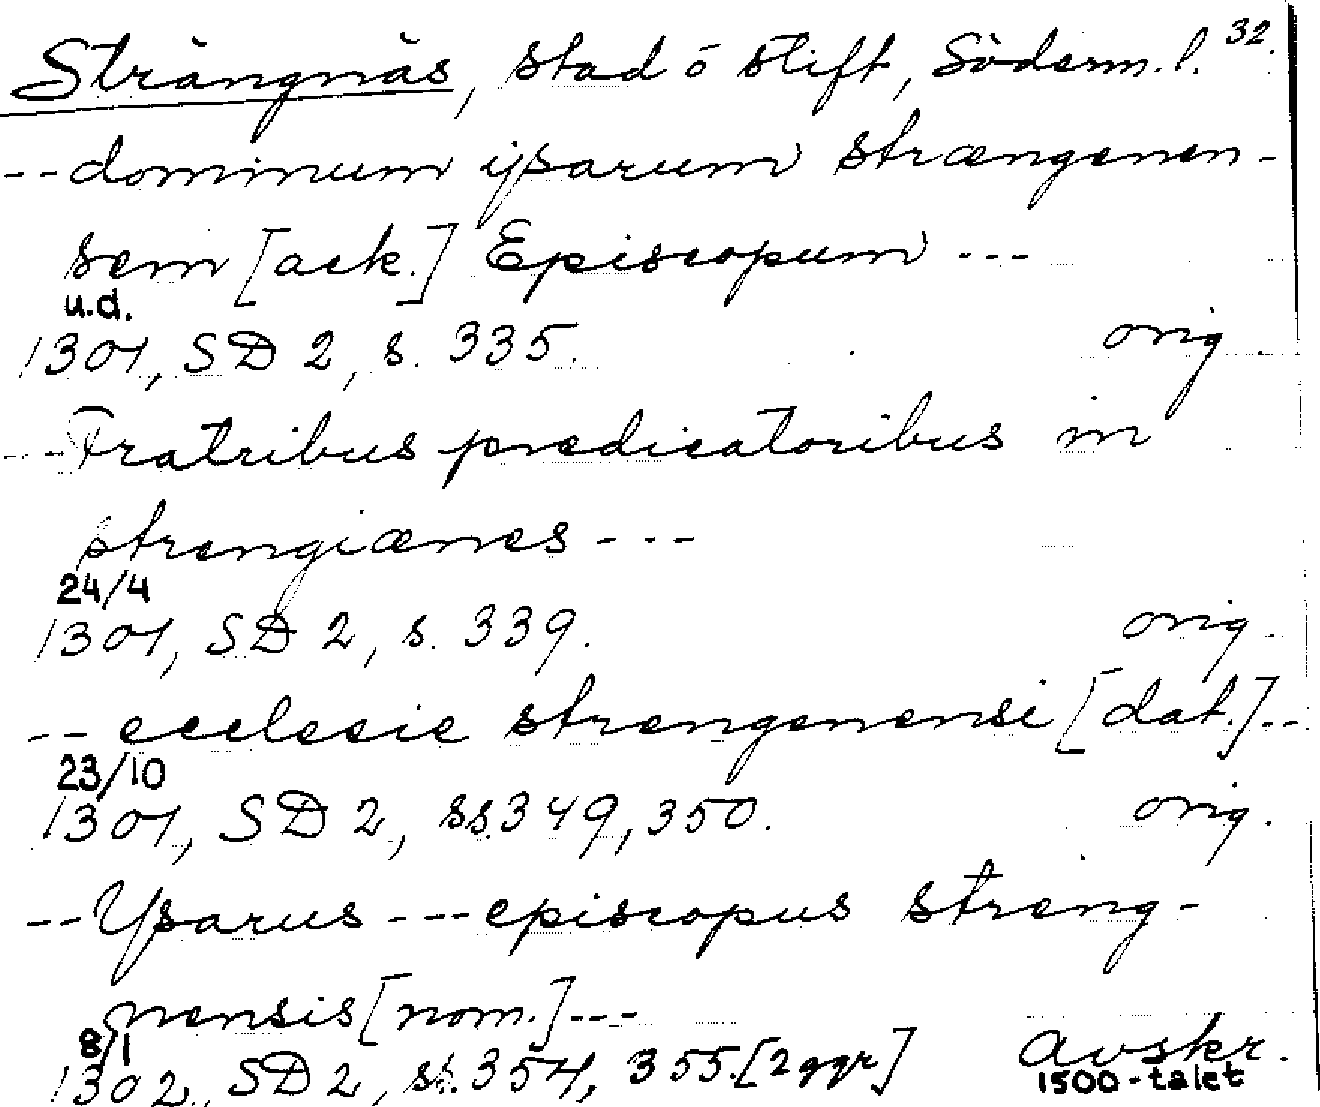 Strängnäs, stad o stift, Söderm.l. 32.
--dominum ysarum strængenen-
sem [ack.] Episcopum ---
u.d.
1301, SD 2, s. 335. orig.
---Fratribus predicatoribus in
strengiænes ---
24/4
1301, SD 2, s. 339. orig.
-- ecclesie strengenensi [dat.]--
23/10
1301, SD 2, ss.349, 350. orig.
--Ysarus --- episcopus streng-
nensis [nom.] ---
8/1
1302, SD 2, ss.354, 355.[2 ggr] avskr.
1500-talet